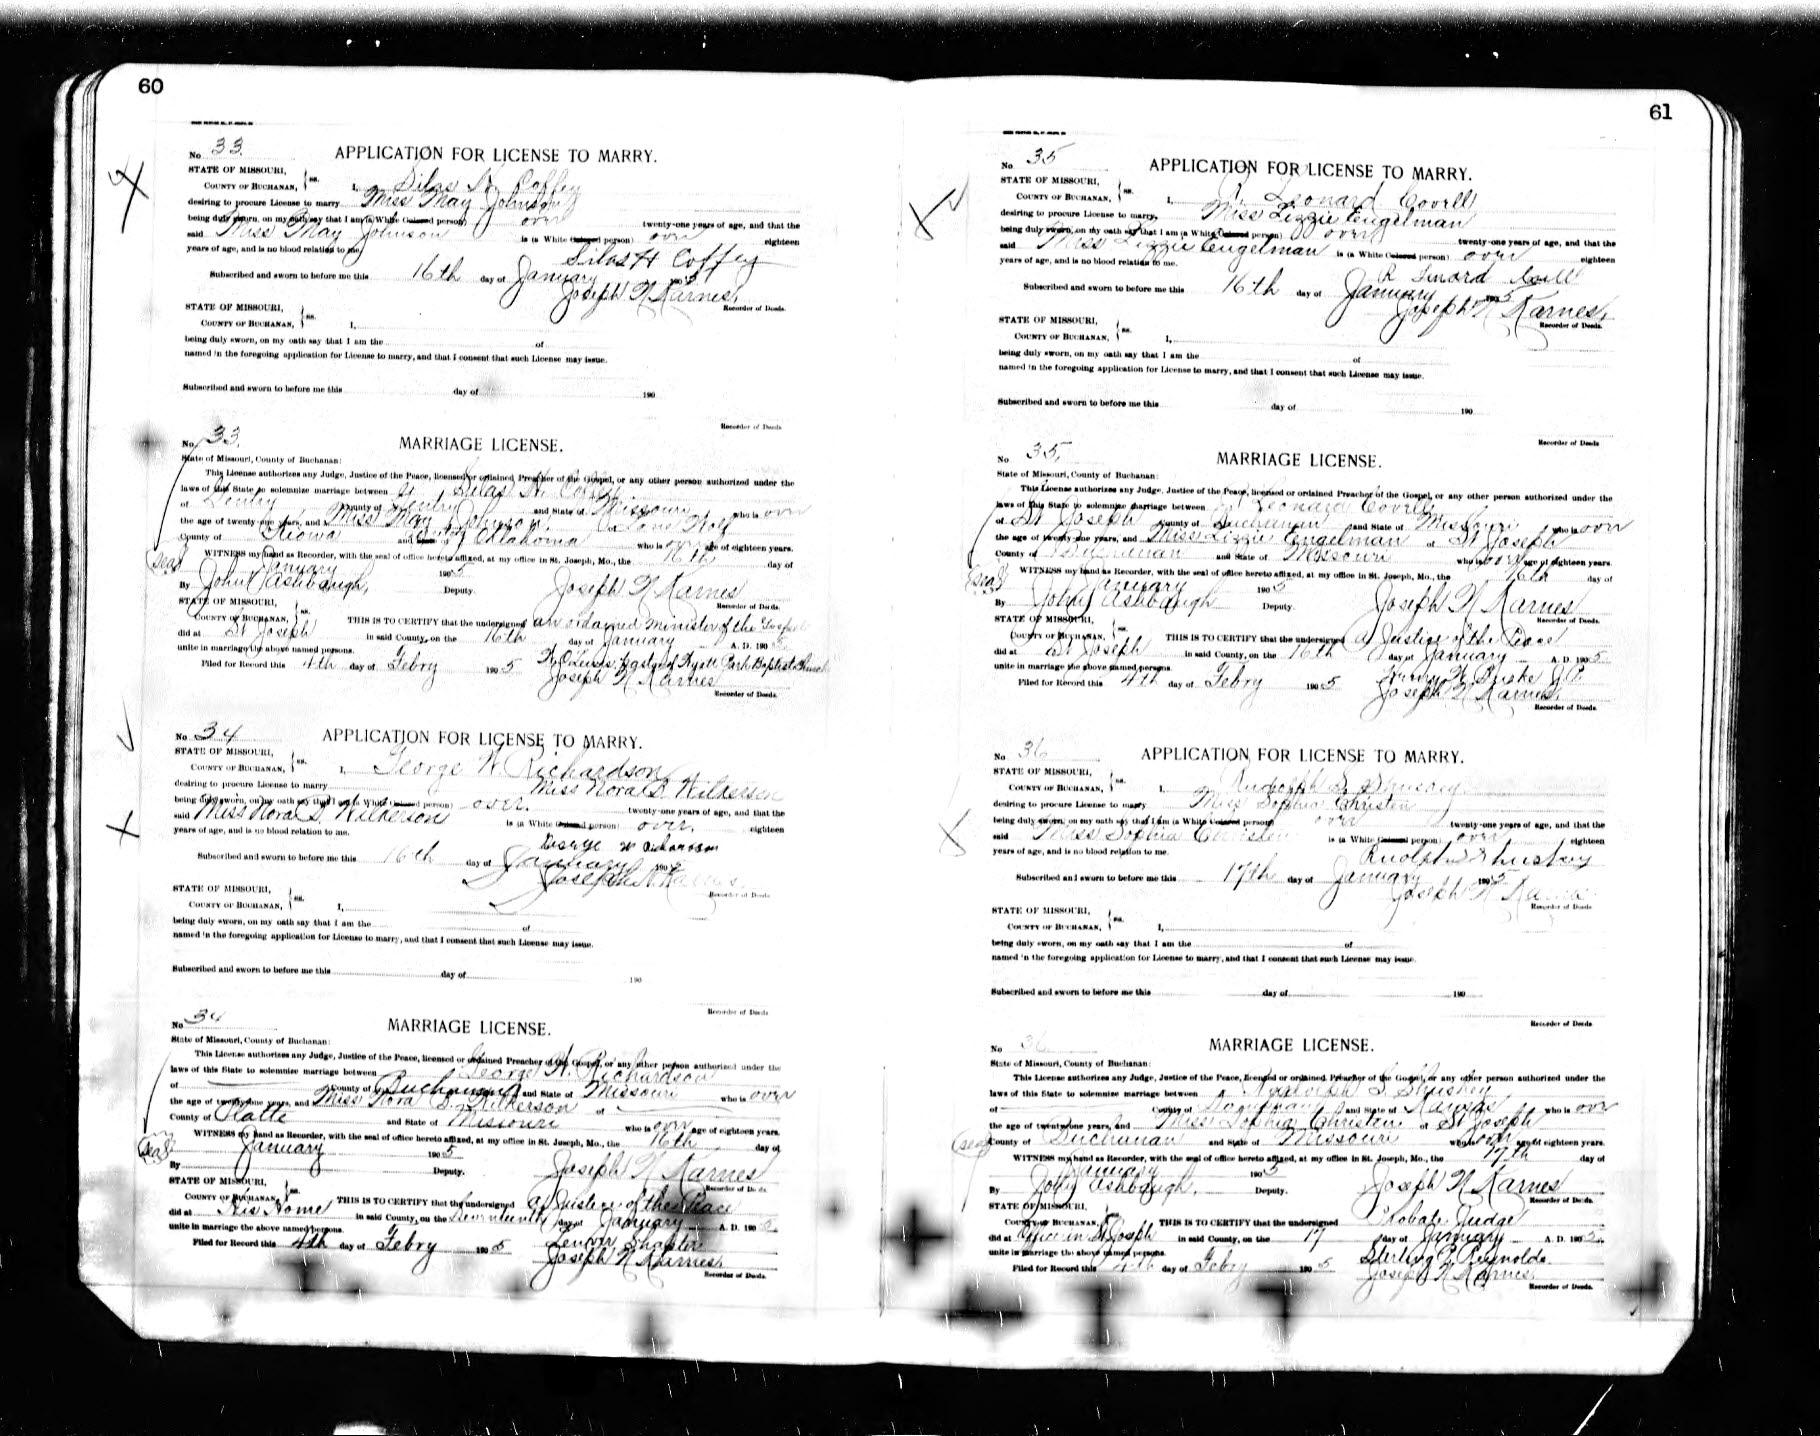 60
No 33.
APPLICATION FOR LICENSE TO MARRY.
STATE OF MISSOURI,
COUNTY OF BUCHANAN, ss. I, Silas H Coffey
desiring to procure License to marry Miss May Johnson
being duly sworn, on my oath say that I am (a White Colored person) over twenty-one years of age, and that the
said Miss May Johnson is (a White Colored person) over eighteen
years of age, and is no blood relation to me.
Silas H Coffey
Subscribed and sworn to before me this 16th day of January 1905
Joseph N Karnes,
Recorder of Deeds.
STATE OF MISSOURI,
COUNTY OF BUCHANAN, ss. I,
being duly sworn, on my oath say that I am the of
named in the foregoing application for License to marry, and that I consent that such License may issue.
Subscribed and sworn to before me this day of 190
Recorder of Deeds
No 33.
MARRIAGE LICENSE.
State of Missouri, County of Buchanan:
This License authorizes any Judge, Justice of the Peace, licensed or ordained Preacher of the Gospel, or any other person authorized under the
laws of this State to solemnize marriage between Silas H. Coffey
of Gentry County of Gentry and State of Missouri who is over
the age of twenty-one years, and Miss May Johnson of Lone Wolf
County of Kiowa and of Oklahoma who is over age of eighteen years.
WITNESS my hand as Recorder, with the seal of office hereto affixed, at my office in St. Joseph, Mo., the 16th day of
(Seal) January 1905
By John J Ashbaugh, Deputy. Joseph N Karnes
Recorder of Deeds.
STATE OF MISSOURI,
COUNTY OF BUCHANAN, ss. THIS IS TO CERTIFY that the undersigned an ordained minister of the Gospel
did at St Joseph in said County, on the 16th day of January A. D. 1905
unite in marriage the above named persons.
Pastor of Hyatt Park Baptist Church
Filed for Record this 4th day of Febry 1905 Joseph N Karnes
Recorder of Deeds.
No 34
APPLICATION FOR LICENSE TO MARRY.
STATE OF MISSOURI,
COUNTY OF BUCHANAN, ss. I, George W. Richardson
desiring to procure License to marry Miss Nora D. Wilkerson
being duly sworn, on my oath say that I am (a White Colored person) over. twenty-one years of age, and that the
said Miss Nora D. Wilkerson is (a White Colored person) over. eighteen
years of age, and is no blood relation to me.
George W Richardson
Subscribed and sworn to before me this 16th day of January 1905
Joseph N Karnes.
Recorder of Deeds
STATE OF MISSOURI,
COUNTY OF BUCHANAN, ss. I,
being duly sworn, on my oath say that I am the of
named in the foregoing application for License to marry, and that I consent that such License may issue.
Subscribed and sworn to before me this day of 190
Recorder of Deeds
No 34
MARRIAGE LICENSE.
State of Missouri, County of Buchanan:
This License authorizes any Judge, Justice of the Peace, licensed or ordained Preacher of the Gospel, or any other person authorized under the
laws of this State to solemnize marriage between George W. Richardson
of County of Buchanan and State of Missouri who is over
the age of twenty-one years, and Miss Nora D. Wilkerson of
County of Platte and State of Missouri who is over age of eighteen years.
WITNESS my hand as Recorder, with the seal of office hereto affixed, at my office in St. Joseph, Mo., the 16th day of
(Seal) January 1905
By Deputy. Joseph N Karnes
Recorder of Deeds.
STATE OF MISSOURI,
COUNTY OF BUCHANAN, ss. THIS IS TO CERTIFY that the undersigned a Justice of the Peace
did at His Home in said County, on the day of January A. D. 1905
unite in marriage the above named persons.
Filed for Record this 4th day of Febry 1905 Joseph N Karnes.
Recorder of Deeds.
61
No 35
APPLICATION FOR LICENSE TO MARRY.
STATE OF MISSOURI,
COUNTY OF BUCHANAN, ss. I, R. Leonard Covell
desiring to procure License to marry, Miss Lizzie Engelman
being duly sworn, on my oath say that I am (a White Colored person) over twenty-one years of age, and that the
said Miss Lizzie Engelman is (a White Colored person) over eighteen
years of age, and is no blood relation to me.
R
Subscribed and sworn to before me this 16th day of January 1905
Joseph N Karnes,
Recorder of Deeds.
STATE OF MISSOURI,
COUNTY OF BUCHANAN, ss. I,
being duly sworn, on my oath say that I am the of
named in the foregoing application for License to marry, and that I consent that such License may issue.
Subscribed and sworn to before me this day of 190
Recorder of Deeds
No 35.
MARRIAGE LICENSE.
State of Missouri, County of Buchanan:
This License authorizes any Judge, Justice of the Peace, licensed or ordained Preacher of the Gospel, or any other person authorized under the
laws of this State to solemnize marriage between R Leonard Covell
of St Joseph County of Buchanan and State of Missouri who is over
the age of twenty-one years, and Miss Lizzie Engelman of St Joseph
County of Buchanan and State of Missouri who is over age of eighteen years.
WITNESS my hand as Recorder, with the seal of office hereto affixed, at my office in St. Joseph, Mo., the 16th day of
(Seal) January 1905
By John J Ashbaugh Deputy. Joseph N Karnes
Recorder of Deeds.
STATE OF MISSOURI,
COUNTY OF BUCHANAN, ss. THIS IS TO CERTIFY that the undersigned a Justice of the Peace
did at St Joseph in said County, on the 16th day of January A. D. 1905
unite in marriage the above named persons.
J.P.
Filed for Record this 4th day of Febry 1905 Joseph N Karnes.
Recorder of Deeds.
No 36
APPLICATION FOR LICENSE TO MARRY.
STATE OF MISSOURI,
COUNTY OF BUCHANAN, ss. I, Rudolph S.
desiring to procure License to marry Miss Sophia Christen
being duly sworn, on my oath say that I am (a White Colored person) over twenty-one years of age, and that the
said Miss Sophia Christen is (a White Colored person) over eighteen
years of age, and is no blood relation to me.
Rudolph S
Subscribed and sworn to before me this 17th day of January 1905
Joseph N Karnes
Recorder of Deeds
STATE OF MISSOURI,
COUNTY OF BUCHANAN, ss. I,
being duly sworn, on my oath say that I am the of
named in the foregoing application for License to marry, and that I consent that such License may issue.
Subscribed and sworn to before me this day of 190
Recorder of Deeds
No 36
MARRIAGE LICENSE.
State of Missouri, County of Buchanan:
This License authorizes any Judge, Justice of the Peace, licensed or ordained Preacher of the Gospel, or any other person authorized under the
laws of this State to solemnize marriage between Rudolph S
of County of and State of Kansas who is over
the age of twenty-one years, and Miss Sophia Christen of St Joseph
County of Buchanan and State of Missouri who is over age of eighteen years.
WITNESS my hand as Recorder, with the seal of office hereto affixed, at my office in St. Joseph, Mo., the 17th day of
(Seal) January 1905
By John J Ashbaugh, Deputy. Joseph N Karnes
Recorder of Deeds.
STATE OF MISSOURI,
COUNTY OF BUCHANAN, ss. THIS IS TO CERTIFY that the undersigned Probate Judge
did at Office in St Joseph in said County, on the 17 day of January A. D. 1905
unite in marriage the above named persons. Sterling P. Reynolds.
Filed for Record this 4th day of Febry 1905 Joseph N Karnes.
Recorder of Deeds.